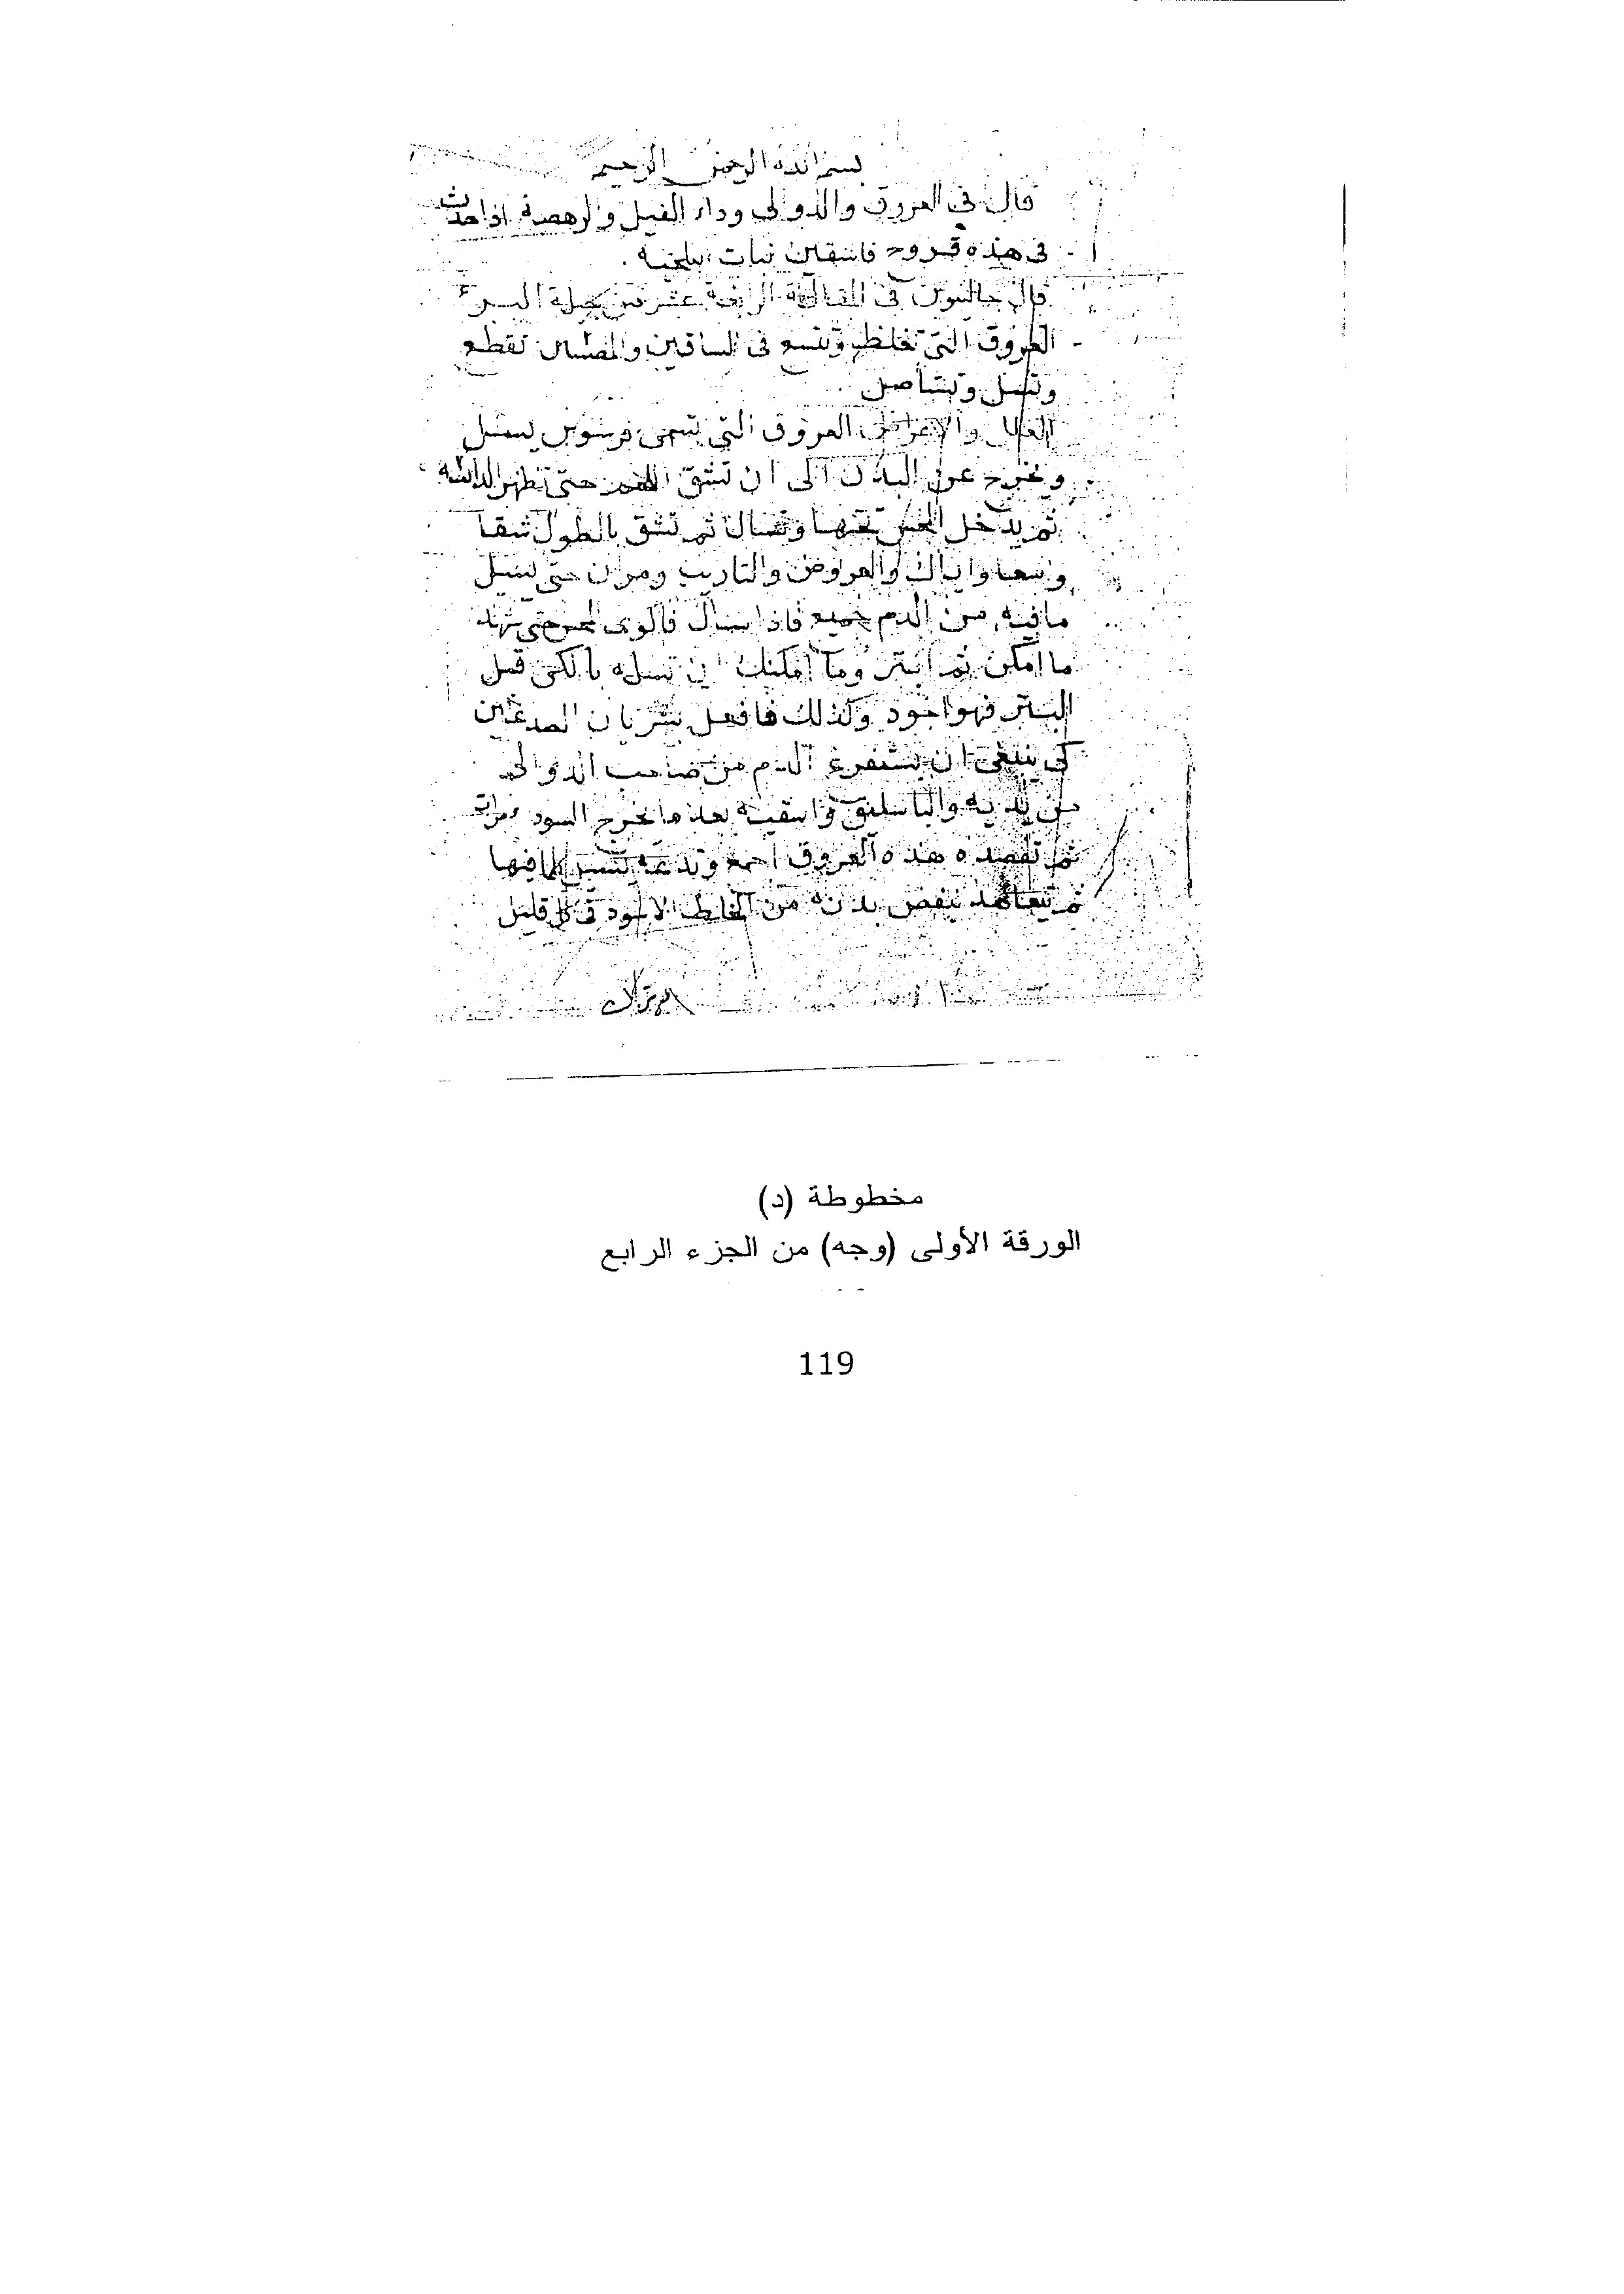 بسم الله الرحمن الرحيم
قال في العروق والدوالي وداء الفيل والرهصة اذا حدث
في هذه قروح
قال جالينوس في المقالة الرابعة عشر من حيلة البرء
العروق التي تغلظ وتتسع في الساقين تقطع
وتسل وتستأصل
العروق التي تسمى
ويخرج عن البدن الى ان تشق حتى تظهر
ثم يدخل تحتها وتشال ثم تشق بالطول شقا
واسعا واياك والعروض والتاريب ومران حتى يسيل
ما فيه من الدم جميع فاذا سال
ما امكن ثم ابتر وما امكنك ان تسله بالكي قبل
البتر فهو اجود وكذلك فافعل بشريان الصدغين
كي ينبغي ان يستفرغ الدم من صاحب الدوالي
من يديه والباسليق واسقيه بعد ما يخرج السود مرات
ثم تفصده هذه العروق اجمع وتدعه يسيل كلما فيها
ثم تتعاهد ينفض بدنه من الخلط الاسود في كل قليل
مخطوطة (د)
الورقة الأولى (وجه) من الجزء الرابع
119